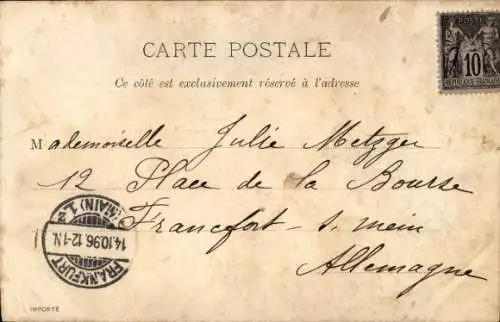 CARTE POSTALE
Ce côté est exclusivement réservé à l'adresse
10
RÉPUBLIQUE FRANÇAISE
Mademoiselle Julie Metzger
12 Place de la Bourse
Francfort s. mein
Allemagne
FRANKFURT (MAIN) 1.z
14.10.96.12-1N.
IMPORTÉ